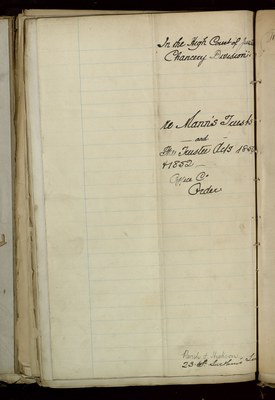 In the High Court of Jus
Chancery Division
re Mann's Trusts
— and —
The Trustee Acts 1850
& 1852 —
Order
23